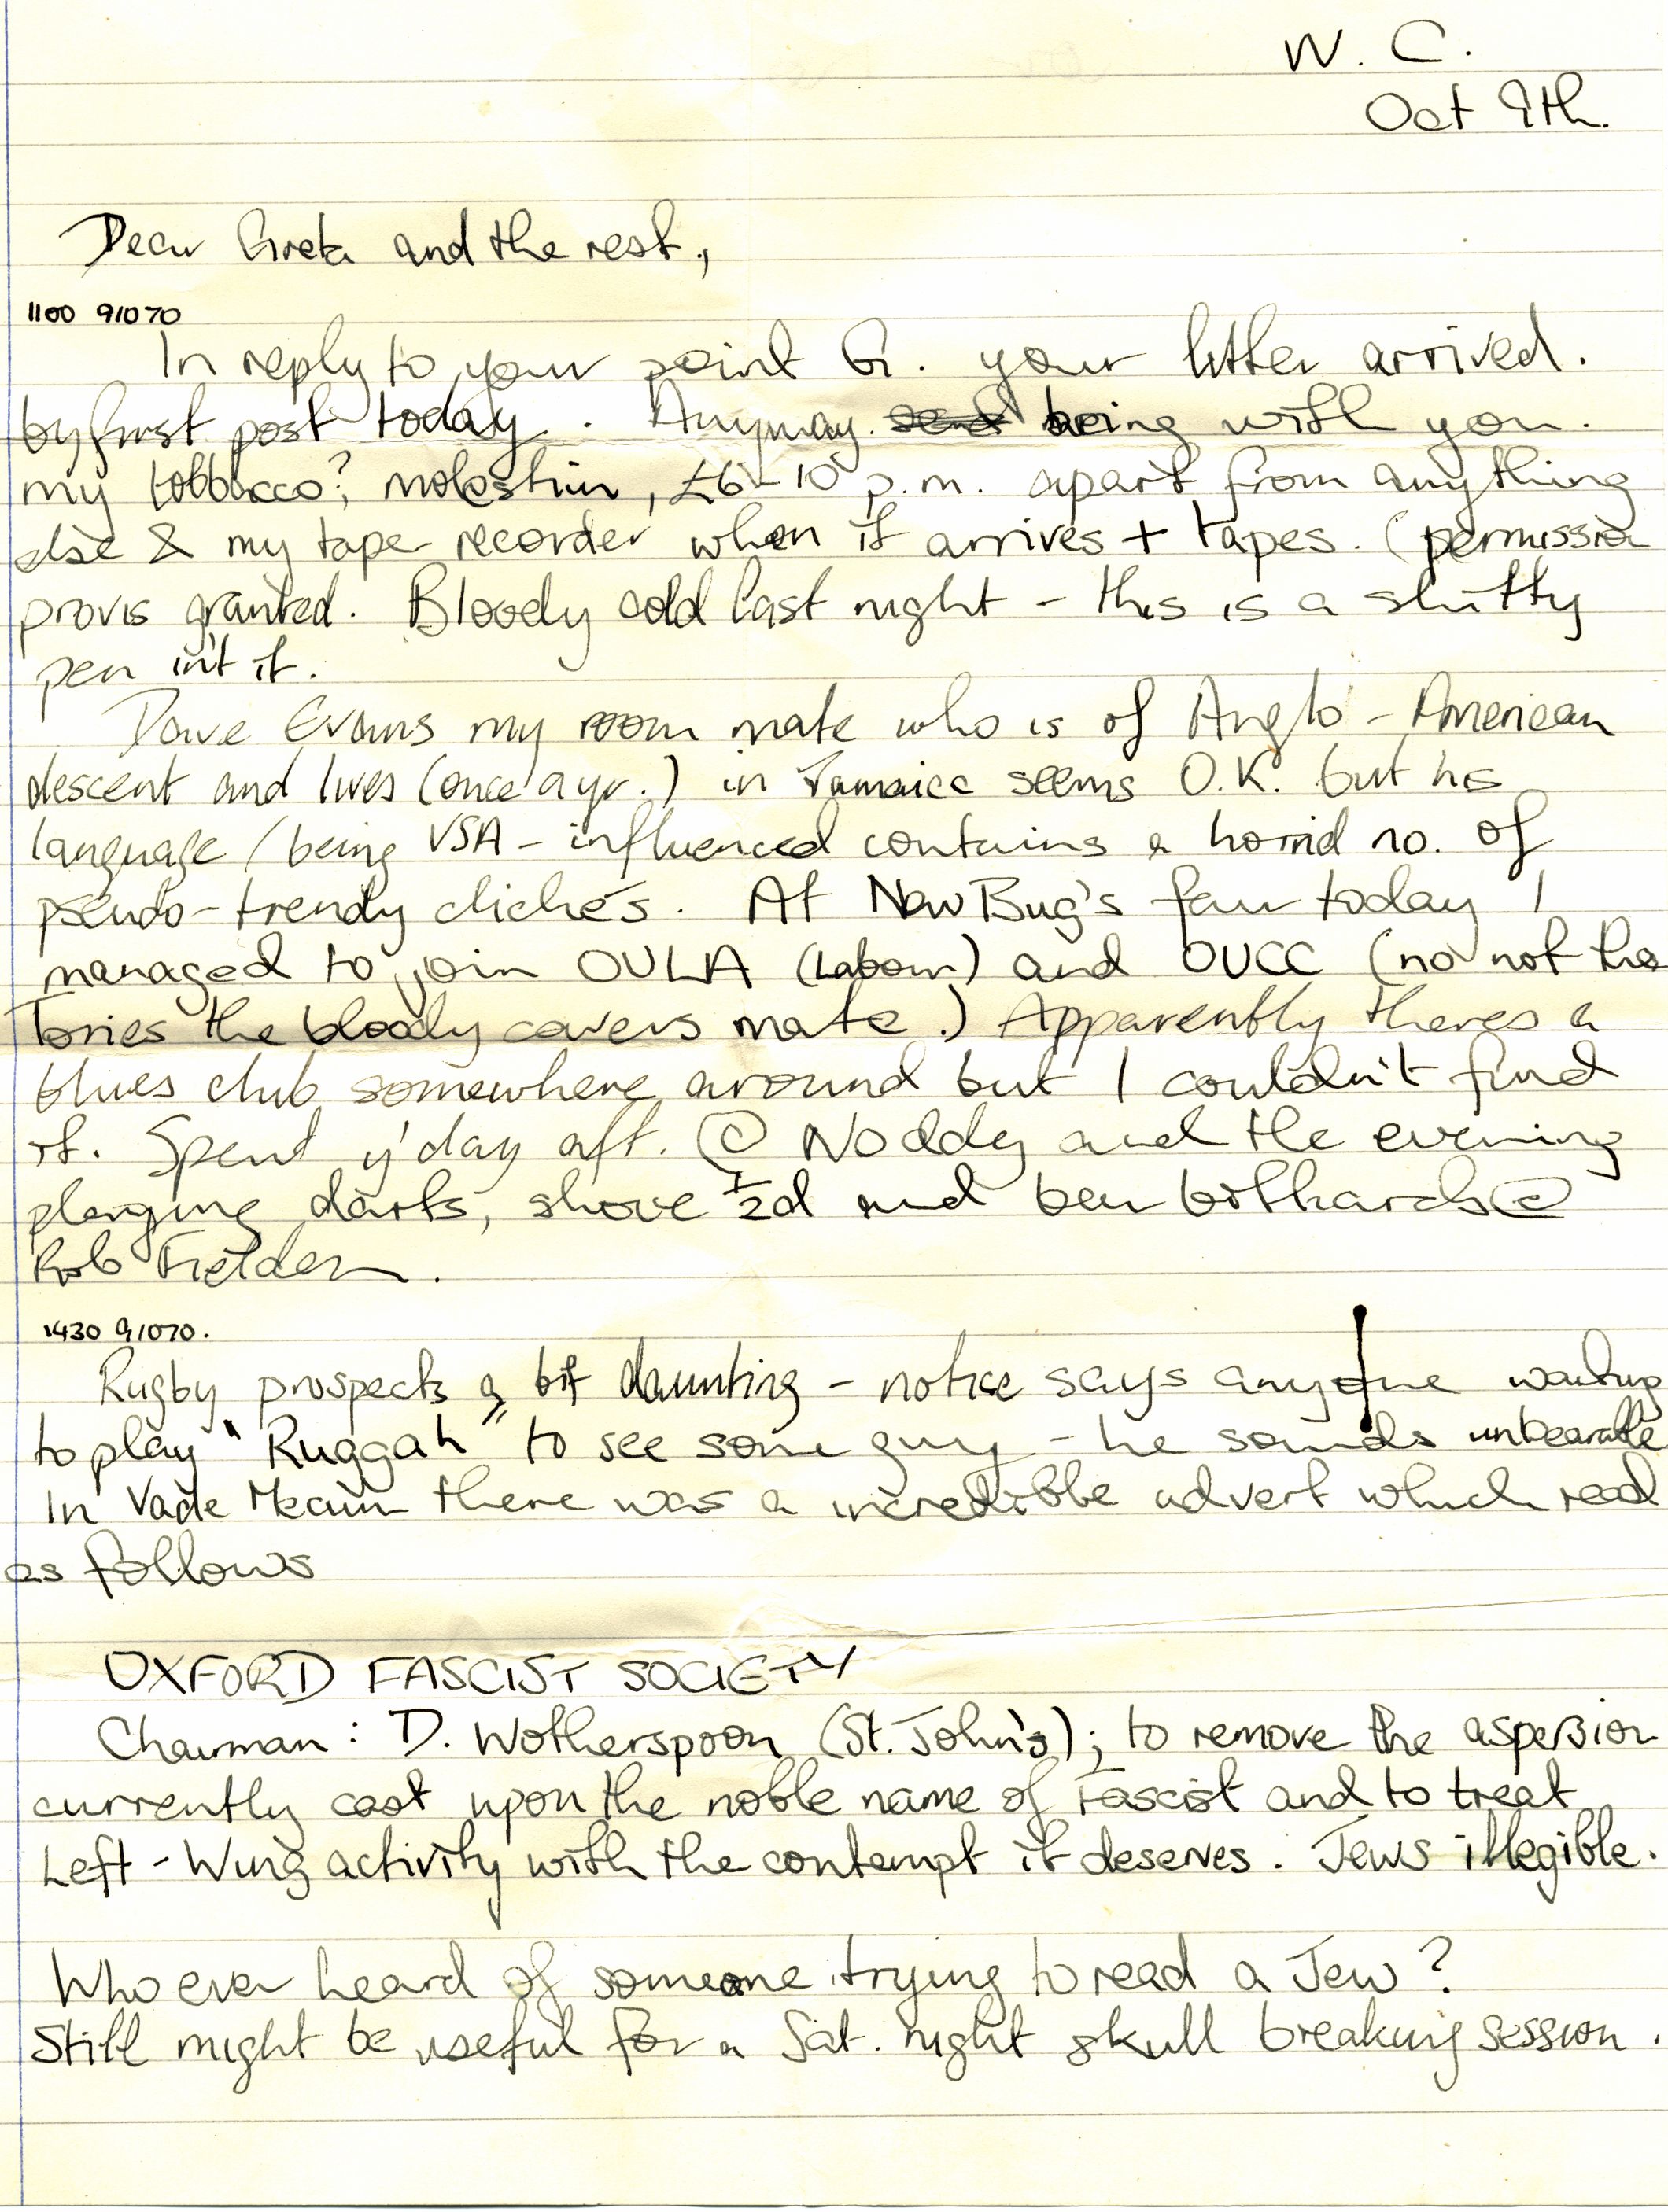 W. C.
Oct 9th.
Dear Greta and the rest,
1100 91070
In reply to your point G. your letter arrived.
by first post today. Anyway being with you.
my tobbacco? moleskin, £6-10 p.m. apart from anything
else & my tape recorder when it arrives + tapes. (permission
provis granted. Bloody cold last night - this is a shitty
pen in't it.
Dave Evans my room mate who is of Anglo - American
descent and lives (once a yr.) in Jamaica seems O.K. but his
language (being USA - influenced contains a horrid no. of
pseudo-trendy clichés. At New Bug's fair today I
managed to join OULA (Labour) and OUCC (no not the
Tories the bloody cavers mate.) Apparently theres a
blues club somewhere around but I couldn't find
it. Spent y'day aft. @ Noddy and the evening
playing darts, shove ½d and bar @
Rob Fielden.
1430 91070.
Rugby prospects a bit daunting - notice says anyone wanting
to play "Ruggah" to see some guy - he sounds unbearable
In Vade Mecum there was a incredible advert which read
as follows
OXFORD FASCIST SOCIETY
Chairman: D. Wotherspoon (St. John's); to remove the aspersion
currently cast upon the noble name of Fascist and to treat
Left - Wing activity with the contempt it deserves. Jews illegible.
Who ever heard of someone trying to read a Jew?
Still might be useful for a Sat. night skull breaking session.